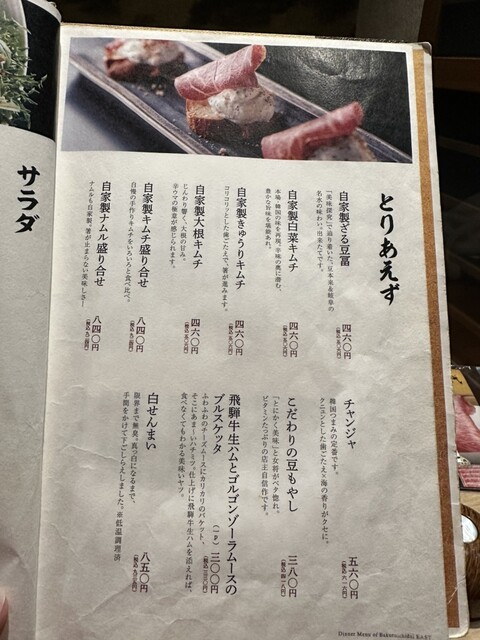 サラダ
とりあえず
自家製ざる豆冨
「美味探究」で辿り着いた、豆本来&岐阜の
名水の味わい。出来たてです。
四六〇円
(税込五〇六円)
自家製白菜キムチ
本場・韓国の味を再現。辛味の奥に潜む、
豊かな旨味を堪能あれ。
四六〇円
(税込五〇六円)
自家製きゅうりキムチ
コリコリっとした歯ごたえで、箸が進みます。
四六〇円
(税込五〇六円)
自家製大根キムチ
じんわり響く、大根の甘み。
辛ウマの極意が感じられます。
四六〇円
(税込五〇六円)
自家製キムチ盛り合せ
自慢の手作りキムチをいろいろと食べ比べ。
八四〇円
(税込九二四円)
自家製ナムル盛り合せ
ナムルも自家製。箸が止まらない美味しさ!
八四〇円
(税込九二四円)
チャンジャ
韓国つまみの定番です。
クニュンとした歯ごたえ×海の香りがクセに。
五六〇円
(税込六一六円)
こだわりの豆もやし
「とにかく美味」と女将がベタ惚れ。
ビタミンたっぷりの店主自信作です。
三八〇円
(税込四一八円)
飛騨牛生ハムとゴルゴンゾーラムースの
ブルスケッタ
(一P)三〇〇円
(税込三三〇円)
ふわふわのチーズムースにカリカリのバケット、
そこにあまーいハチミツ。仕上げに飛騨牛生ハムを添えれば、
食べなくてもわかる美味いヤツ。
白せんまい
限界まで無臭、真っ白になるまで、
手間をかけて下ごしらえしました。※低温調理済
八五〇円
(税込九三五円)